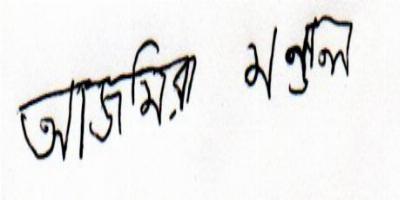 আজমিরা মণ্ডল